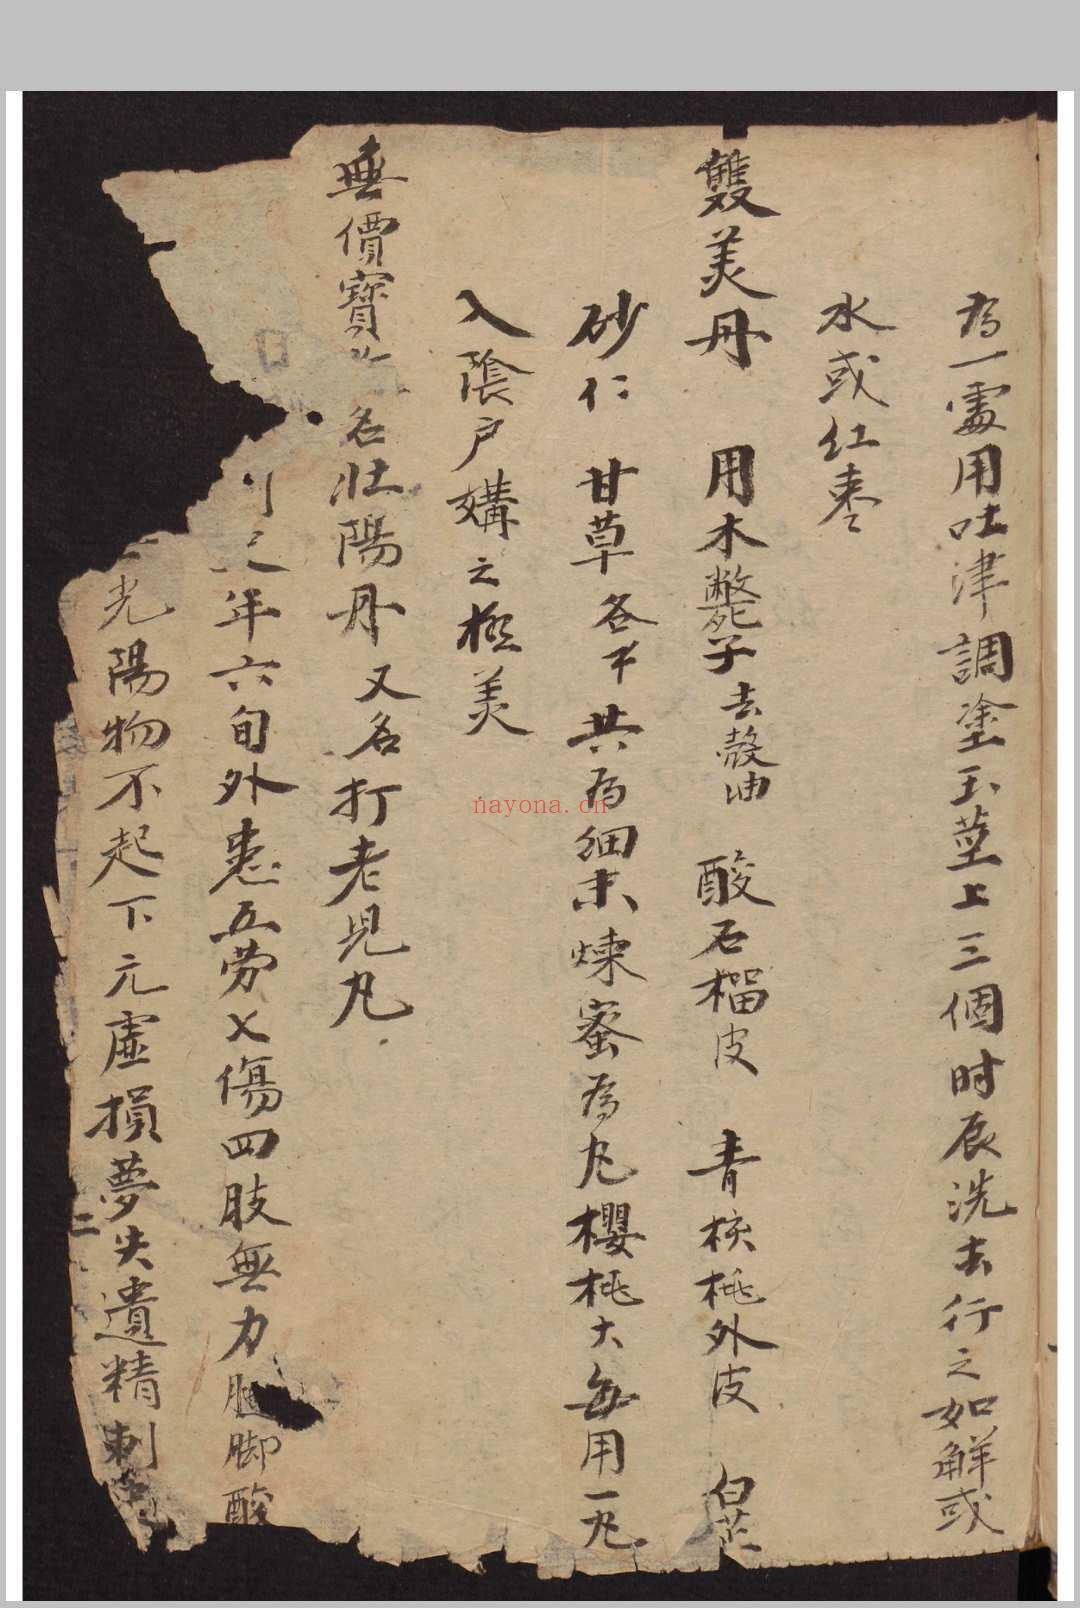 為一處用吐津調塗玉莖上三個时辰洗去行之如解或
水或红枣
雙美丹 用木鱉子去殼油 酸石榴皮 青核桃外皮 白芷
砂仁 甘草各下共為细末煉蜜為丸櫻桃大每用一丸
入陰户媾之極美
無價寶 名壮陽丹又名打老児丸
年六旬外患五劳乂傷四肢無力腿脚酸
光陽物不起下元虛損夢失遺精刺
二
nayona.cn